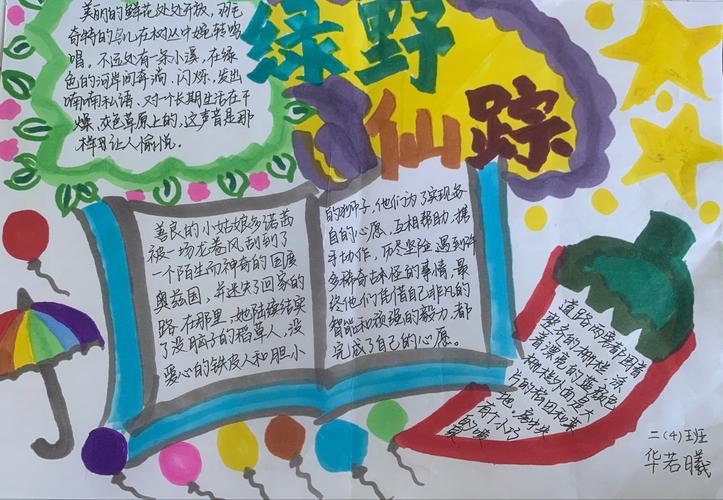 美丽的鲜花处处开放,羽毛
奇特的鸟儿在树丛中婉转鸣
唱。不远处有一条小溪,在绿
色的河岸间奔淌、闪烁,发出
喃喃私语。对一个长期生活在干
燥、灰色草原上的,这声音是那
样另让人愉悦。
绿野
仙踪
善良的小姑娘多诺茜
被一场龙卷风刮到了
一个陌生而神奇的国度
奥兹国,并迷失了回家的
路。在那里,她陆续结实
了没脑子的稻草人、没
爱心的铁皮人和胆小
的狮子,他们为了实现各
自的心愿,互相帮助,携
手协作,历尽艰险,遇到许
多稀奇古怪的事情,最
终他们凭借自己非凡的
智能和顽强的毅力,都
完成了自己的心愿。
道路两旁都围着
整名的栅栏,漆
着漂亮的蓝颜色
栅栏外面是大
片的稻田和菜
地。
二(4)班
华若曦